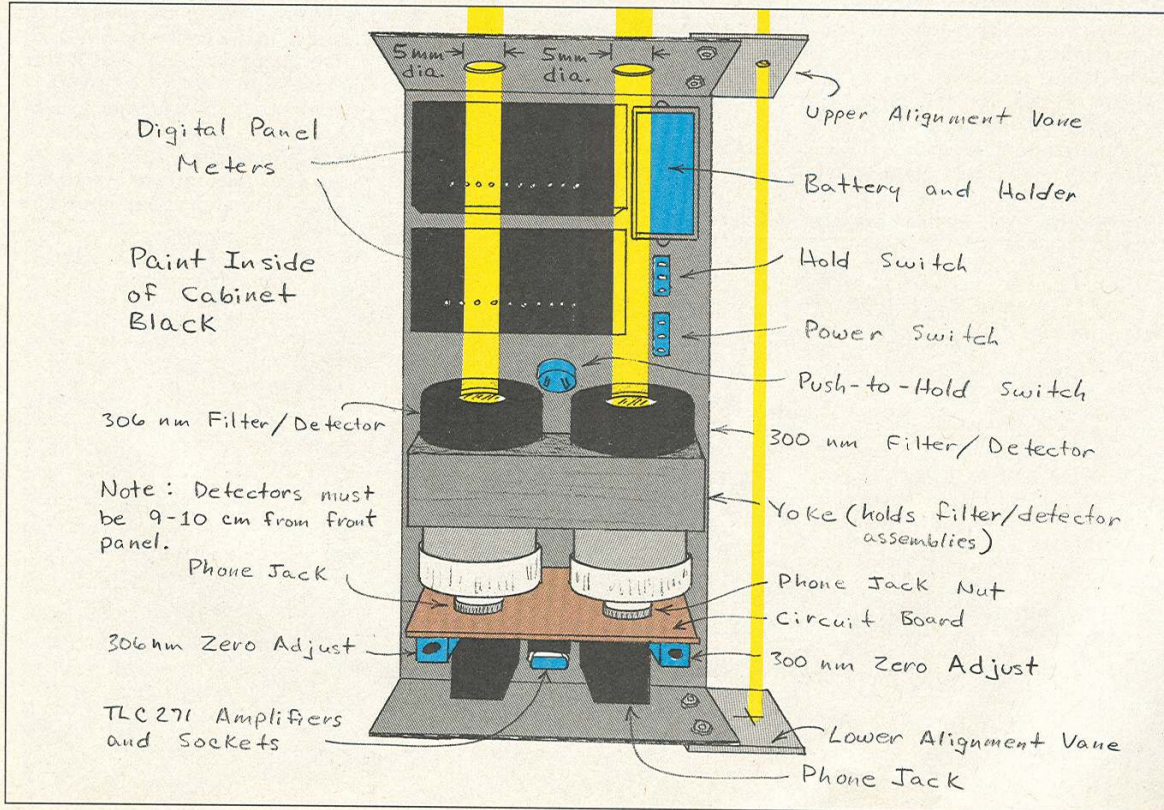 5mm
dia.
5mm
dia.
Upper Alignment Vane
Digital Panel
Meters
Battery and Holder
Paint Inside
of Cabinet
Black
Hold Switch
Power Switch
Push-to-Hold Switch
306 nm Filter/Detector
300 nm Filter/Detector
Note: Detectors must
be 9-10 cm from front
panel.
Yoke (holds filter/detector
assemblies)
Phone Jack
Phone Jack Nut
Circuit Board
306nm Zero Adjust
300 nm Zero Adjust
TLC271 Amplifiers
and Sockets
Lower Alignment Vane
Phone Jack